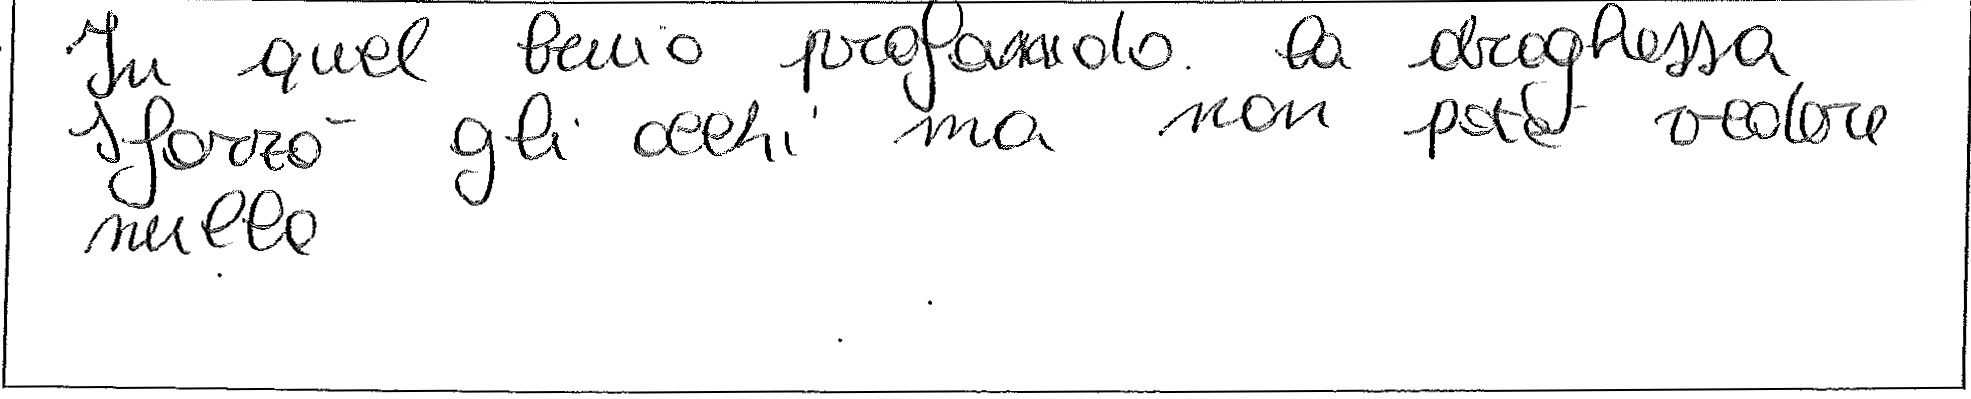 In quel buio profondo. la draghessa
sforzò gli occhi ma non poté vedere
nulla